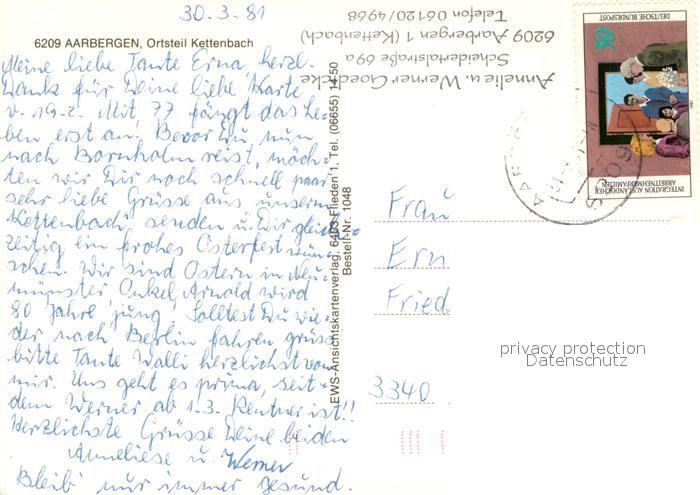 30.3.81
6209 AARBERGEN, Ortsteil Kettenbach
Meine liebe Tante Erna, herzl.
Dank für Deine liebe Karte
v. 19.2. Mit 77 fängt das Le-
ben erst an. Bevor Du nun
nach Bornholm reist, möch-
ten wir Dir noch schnell paar
sehr liebe Grüsse aus unserm
Kettenbach senden u. Dir gleich-
zeitig ein frohes Osterfest wün-
schen. Wir sind Ostern in Neu-
münster, Onkel Arnold wird
80 Jahre jung. Solltest Du wie-
der nach Berlin fahren grüss
bitte Tante Walli herzlichst von
mir. Uns geht es prima, seit-
dem Werner ab 1.3. Rentner ist!!
Herzlichste Grüsse Deine beiden
Anneliese u. Werner
Bleib' nur immer gesund.
EWS-Ansichtskartenverlag, 6403 Flieden 1, Tel. (06655) 14 50
Bestell-Nr. 1048
Annelie u. Werner Goedicke
Scheidertalstraße 69a
6209 Aarbergen 1 (Kettenbach)
Telefon 06120/4968
DEUTSCHE BUNDESPOST
50
INTEGRATION AUSLÄNDISCHER
ARBEITNEHMERFAMILIEN
Frau
Ern
Fried
3340
privacy protection
Datenschutz